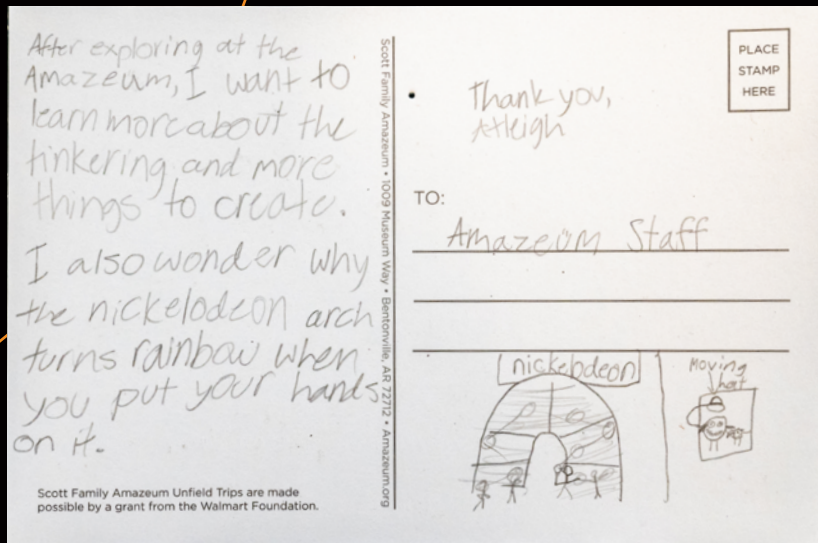 After exploring at the
Amazeum, I want to
learn more about the
tinkering and more
things to create.
I also wonder why
the nickelodeon arch
turns rainbow when
you put your hands
on it.
Scott Family Amazeum Unfield Trips are made
possible by a grant from the Walmart Foundation.
Scott Family Amazeum • 1009 Museum Way • Bentonville, AR 72712 • Amazeum.org
PLACE
STAMP
HERE
Thank you,
TO:
Amazeum Staff
nickelodeon
Moving